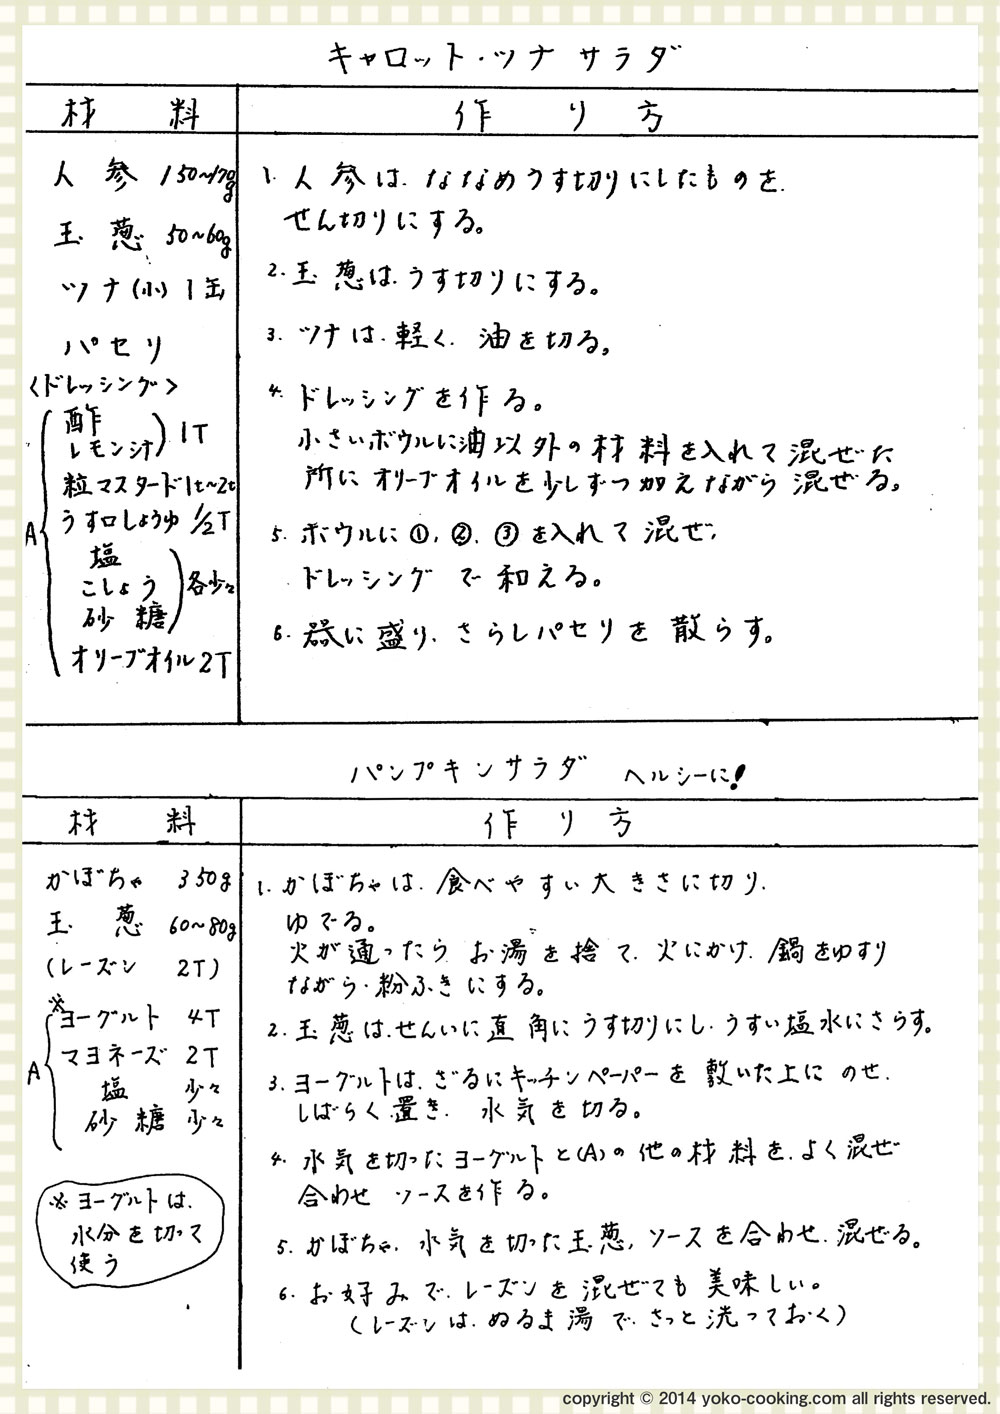 キャロット・ツナサラダ
材料
作り方
人参 150~170g
玉葱 50~60g
ツナ(小) 1缶
パセリ
<ドレッシング>
A
酢
レモン汁
1T
粒マスタード1t~2t
うす口しょうゆ 1/2T
塩
こしょう
砂糖
各少々
オリーブオイル2T
1. 人参は、ななめうす切りにしたものを、
せん切りにする。
2. 玉葱は、うす切りにする。
3. ツナは、軽く、油を切る。
4. ドレッシングを作る。
小さいボウルに油以外の材料を入れて混ぜた
所にオリーブオイルを少しずつ加えながら混ぜる。
5. ボウルに①、②、③を入れて混ぜ、
ドレッシングで和える。
6. 器に盛り、さらしパセリを散らす。
パンプキンサラダ ヘルシーに!
材料
作り方
かぼちゃ 350g
玉葱 60~80g
(レーズン 2T)
A
※ヨーグルト 4T
マヨネーズ 2T
塩 少々
砂糖 少々
※ヨーグルトは、
水分を切って
使う
1. かぼちゃは、食べやすい大きさに切り、
ゆでる。
火が通ったら、お湯を捨て、火にかけ、鍋をゆすり
ながら・粉ふきにする。
2. 玉葱は、せんいに直角にうす切りにし、うすい塩水にさらす。
3. ヨーグルトは、ざるにキッチンペーパーを敷いた上にのせ、
しばらく置き、水気を切る。
4. 水気を切ったヨーグルトと(A)の他の材料を、よく混ぜ
合わせ ソースを作る。
5. かぼちゃ、水気を切った玉葱、ソースを合わせ、混ぜる。
6. お好みで、レーズンを混ぜても美味しい。
(レーズンは、ぬるま湯で、さっと洗っておく)
copyright © 2014 yoko-cooking.com all rights reserved.